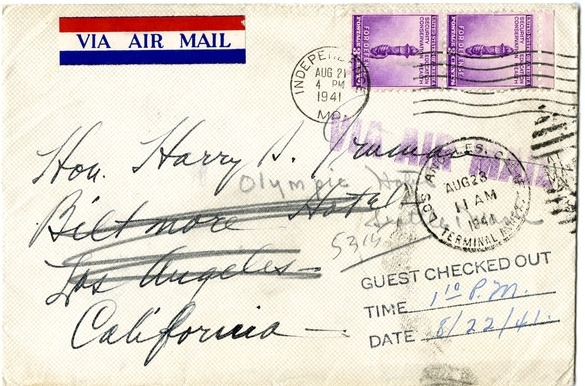 VIA AIR MAIL
INDEPENDENCE
AUG 21
4 PM
1941
MO.
UNITED STATES OF AMERICA
SECURITY · EDUCATION
CONSERVATION · HEALTH
FOR DEFENSE
POSTAGE 3 CENTS
UNITED STATES OF AMERICA
SECURITY · EDUCATION
CONSERVATION · HEALTH
FOR DEFENSE
POSTAGE 3 CENTS
VIA AIR MAIL
Hon. Harry S. Truman
Olympic Hotel
Biltmore Hotel
Los Angeles
California
LOS ANGELES, CALIF.
AUG 23
11 AM
1941
TERMINAL ANNEX
GUEST CHECKED OUT
TIME 1 10 P.M.
DATE 8/22/41.